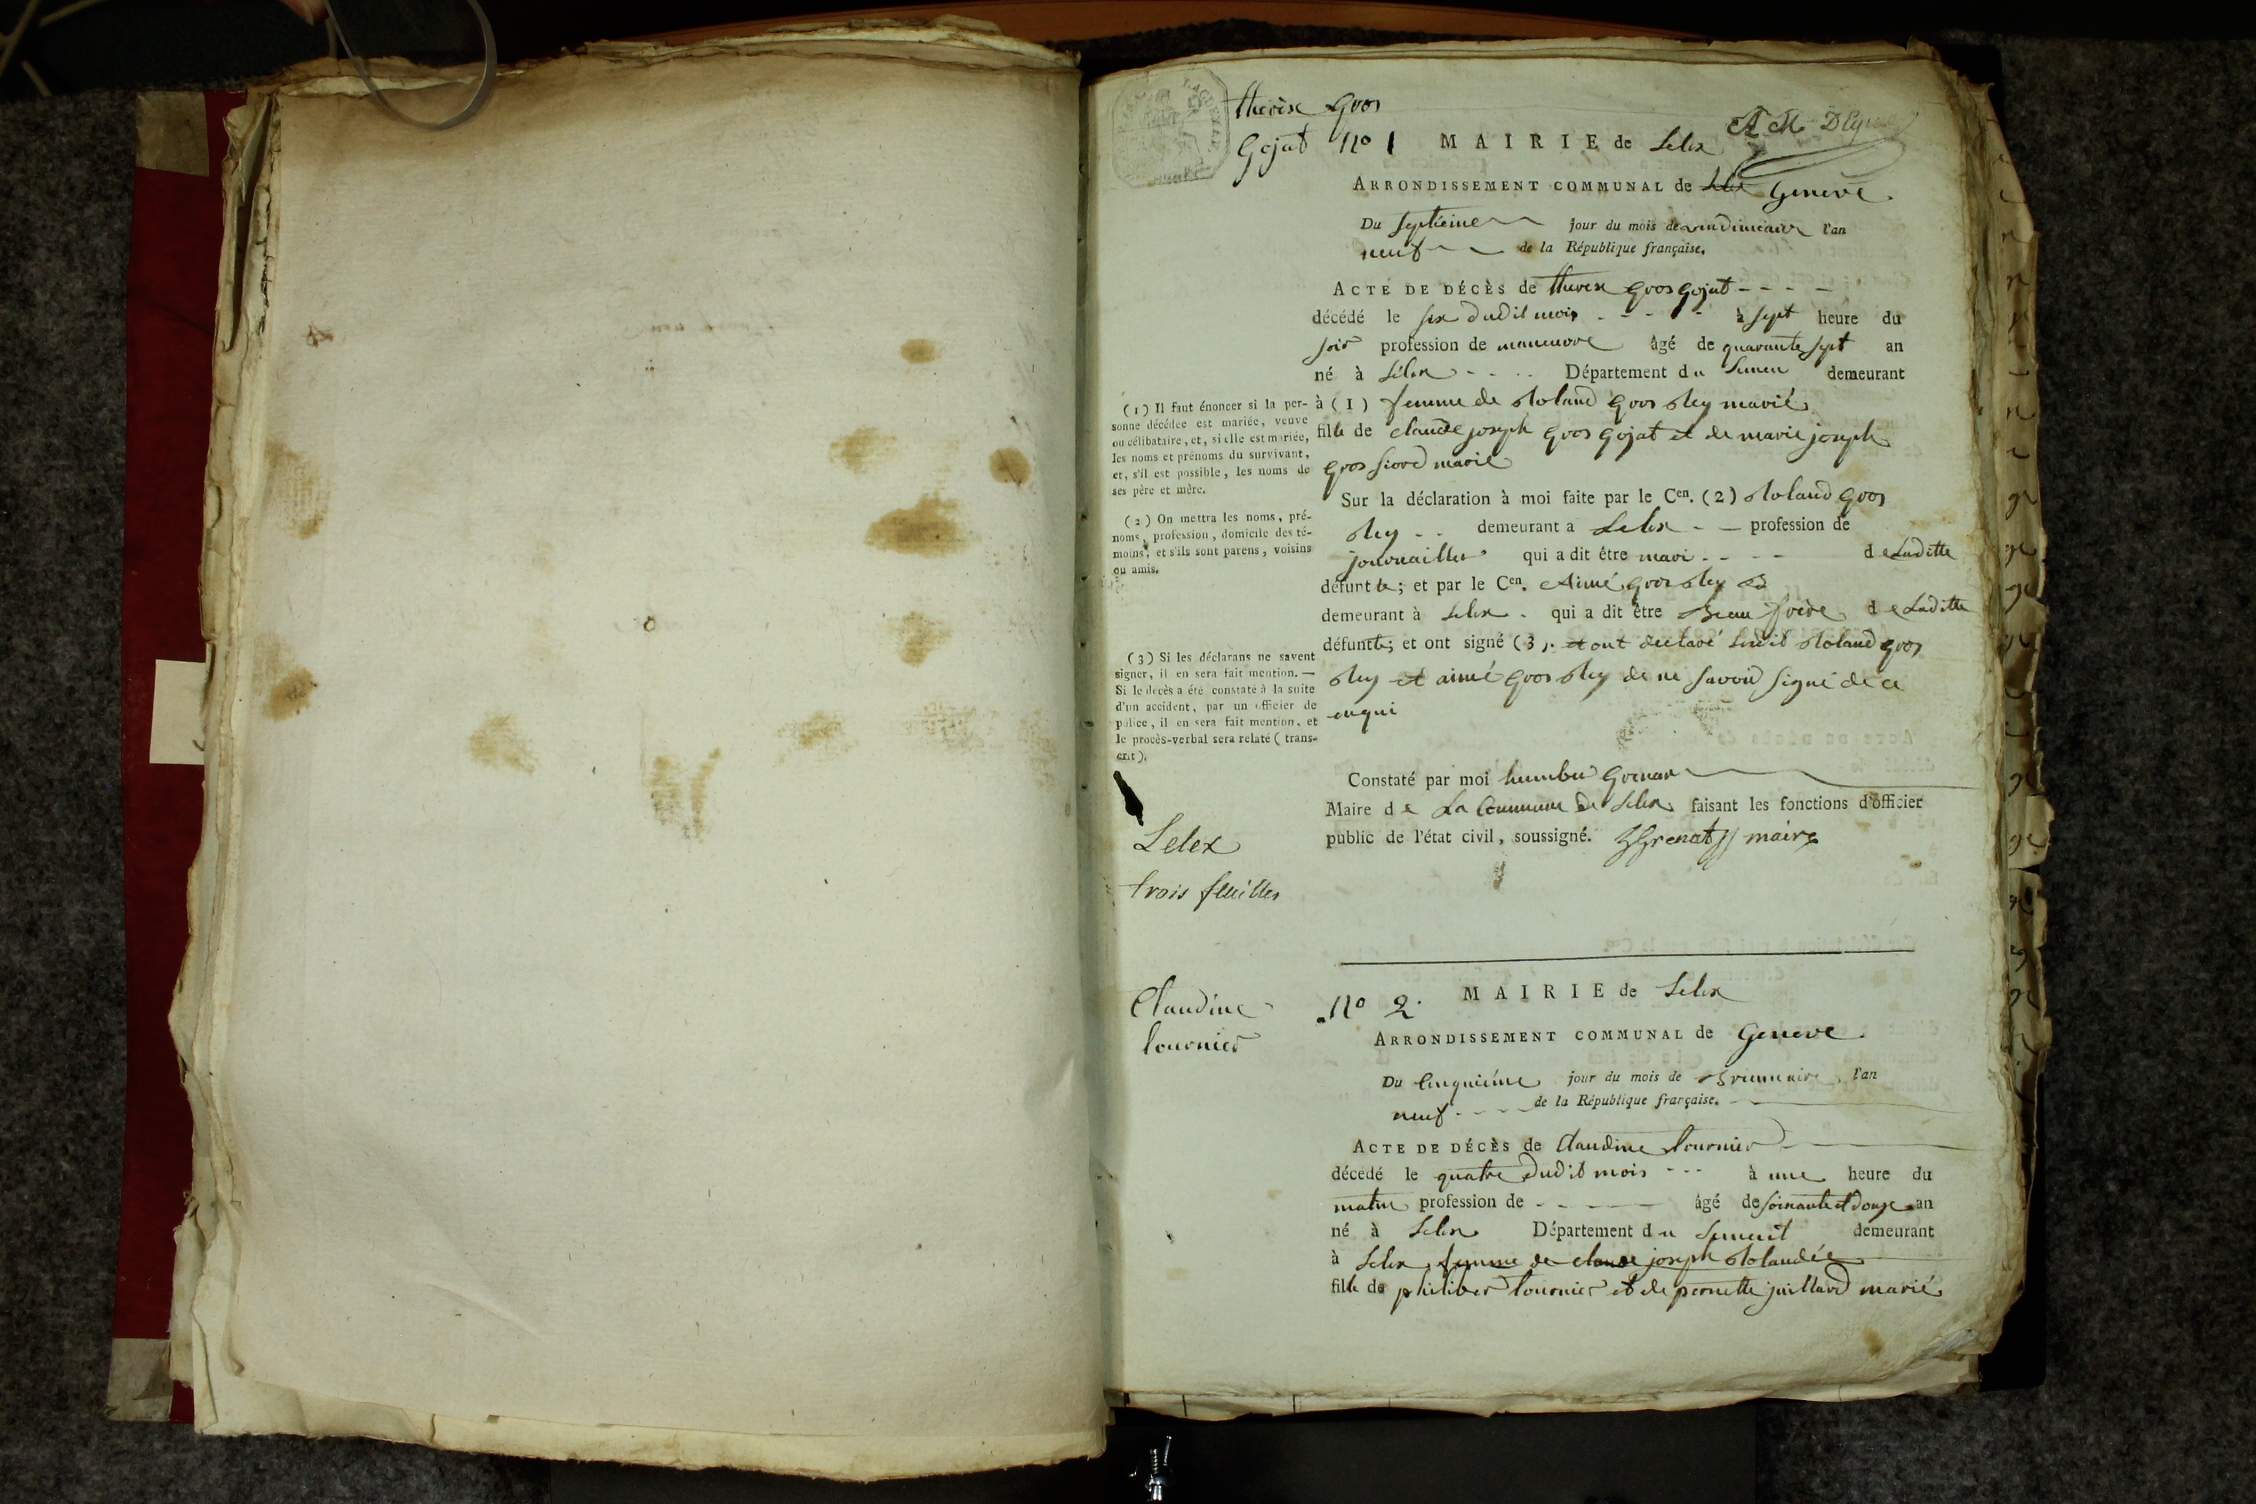 therèse gros
Gojat No 1 MAIRIE de Lelex
ARRONDISSEMENT COMMUNAL de Lelex Geneve
Du septieme jour du mois de vendimiaire l'an
neuf de la République française.
ACTE DE DÉCÈS de therese gros gojat
décédé le six dudit mois à sept heure du
soir profession de manœuvre âgé de quarante sept an
né à Lélex Département du Leman demeurant
à (1) femme de Roland gros Rey marié
fille de claude joseph gros gojat et de marie joseph
gros marié
Sur la déclaration à moi faite par le Cen. (2) Roland gros
Rey demeurant a Lelex profession de
journailler qui a dit être mari de Laditte
défuntte; et par le Cen. Aimé gros Rey
demeurant à Lelex qui a dit être Beau frère de Laditte
défuntte; et ont signé (3). et ont declaré lesdit Roland gros
Rey et aimé gros Rey de ne savoir signé de ce
enqui
Constaté par moi humber Grenan
Maire de La Commune de Lelex faisant les fonctions d'officier
public de l'état civil, soussigné. Grenat maire
(1) Il faut énoncer si la per-
sonne décédée est mariée, veuve
ou célibataire, et, si elle est mariée,
les noms et prénoms du survivant,
et, s'il est possible, les noms de
ses père et mère.
(2) On mettra les noms, pré-
noms, profession, domicile des té-
moins, et s'ils sont parens, voisins
ou amis.
(3) Si les déclarans ne savent
signer, il en sera fait mention. —
Si le decès a été constaté à la suite
d'un accident, par un officier de
police, il en sera fait mention, et
le procès-verbal sera relaté (trans-
crit).
Lelex
trois feuilles
Claudine
tournier
No 2. MAIRIE de Lelex
ARRONDISSEMENT COMMUNAL de Geneve
Du Cinquième jour du mois de Brumaire l'an
neuf de la République française.
ACTE DE DÉCÈS de Claudine tournier
décedé le quatre dudit mois à une heure du
matin profession de âgé de soixante et douze an
né à Lelex Département du demeurant
à Lelex femme de claude joseph
fille de philiber tournier et de pernette juillard marié